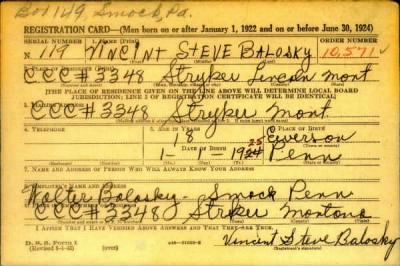 Box 149, Smock, Pa.
REGISTRATION CARD—(Men born on or after January 1, 1922 and on or before June 30, 1924)
SERIAL NUMBER 1. NAME (Print) ORDER NUMBER
N 119 VINCINT STEVE BALOSKY 10,571
2. PLACE OF RESIDENCE
CCC #3348 Stryker Lincoln Mont
[THE PLACE OF RESIDENCE GIVEN ON THE LINE ABOVE WILL DETERMINE LOCAL BOARD
JURISDICTION; LINE 2 OF REGISTRATION CERTIFICATE WILL BE IDENTICAL]
3. MAILING ADDRESS
CCC #3348 Stryker Mont.
4. TELEPHONE 5. AGE IN YEARS 6. PLACE OF BIRTH
18 Everson
DATE OF BIRTH
1 1 1924 Penn
7. NAME AND ADDRESS OF PERSON WHO WILL ALWAYS KNOW YOUR ADDRESS
Walter Balosky - Smock Penn
8. EMPLOYER'S NAME AND ADDRESS
CCC #3348 Stryker Montana
I AFFIRM THAT I HAVE VERIFIED ABOVE ANSWERS AND THAT THEY ARE TRUE.
D. S. S. Form 1 (over)
Vincent Steve Balosky